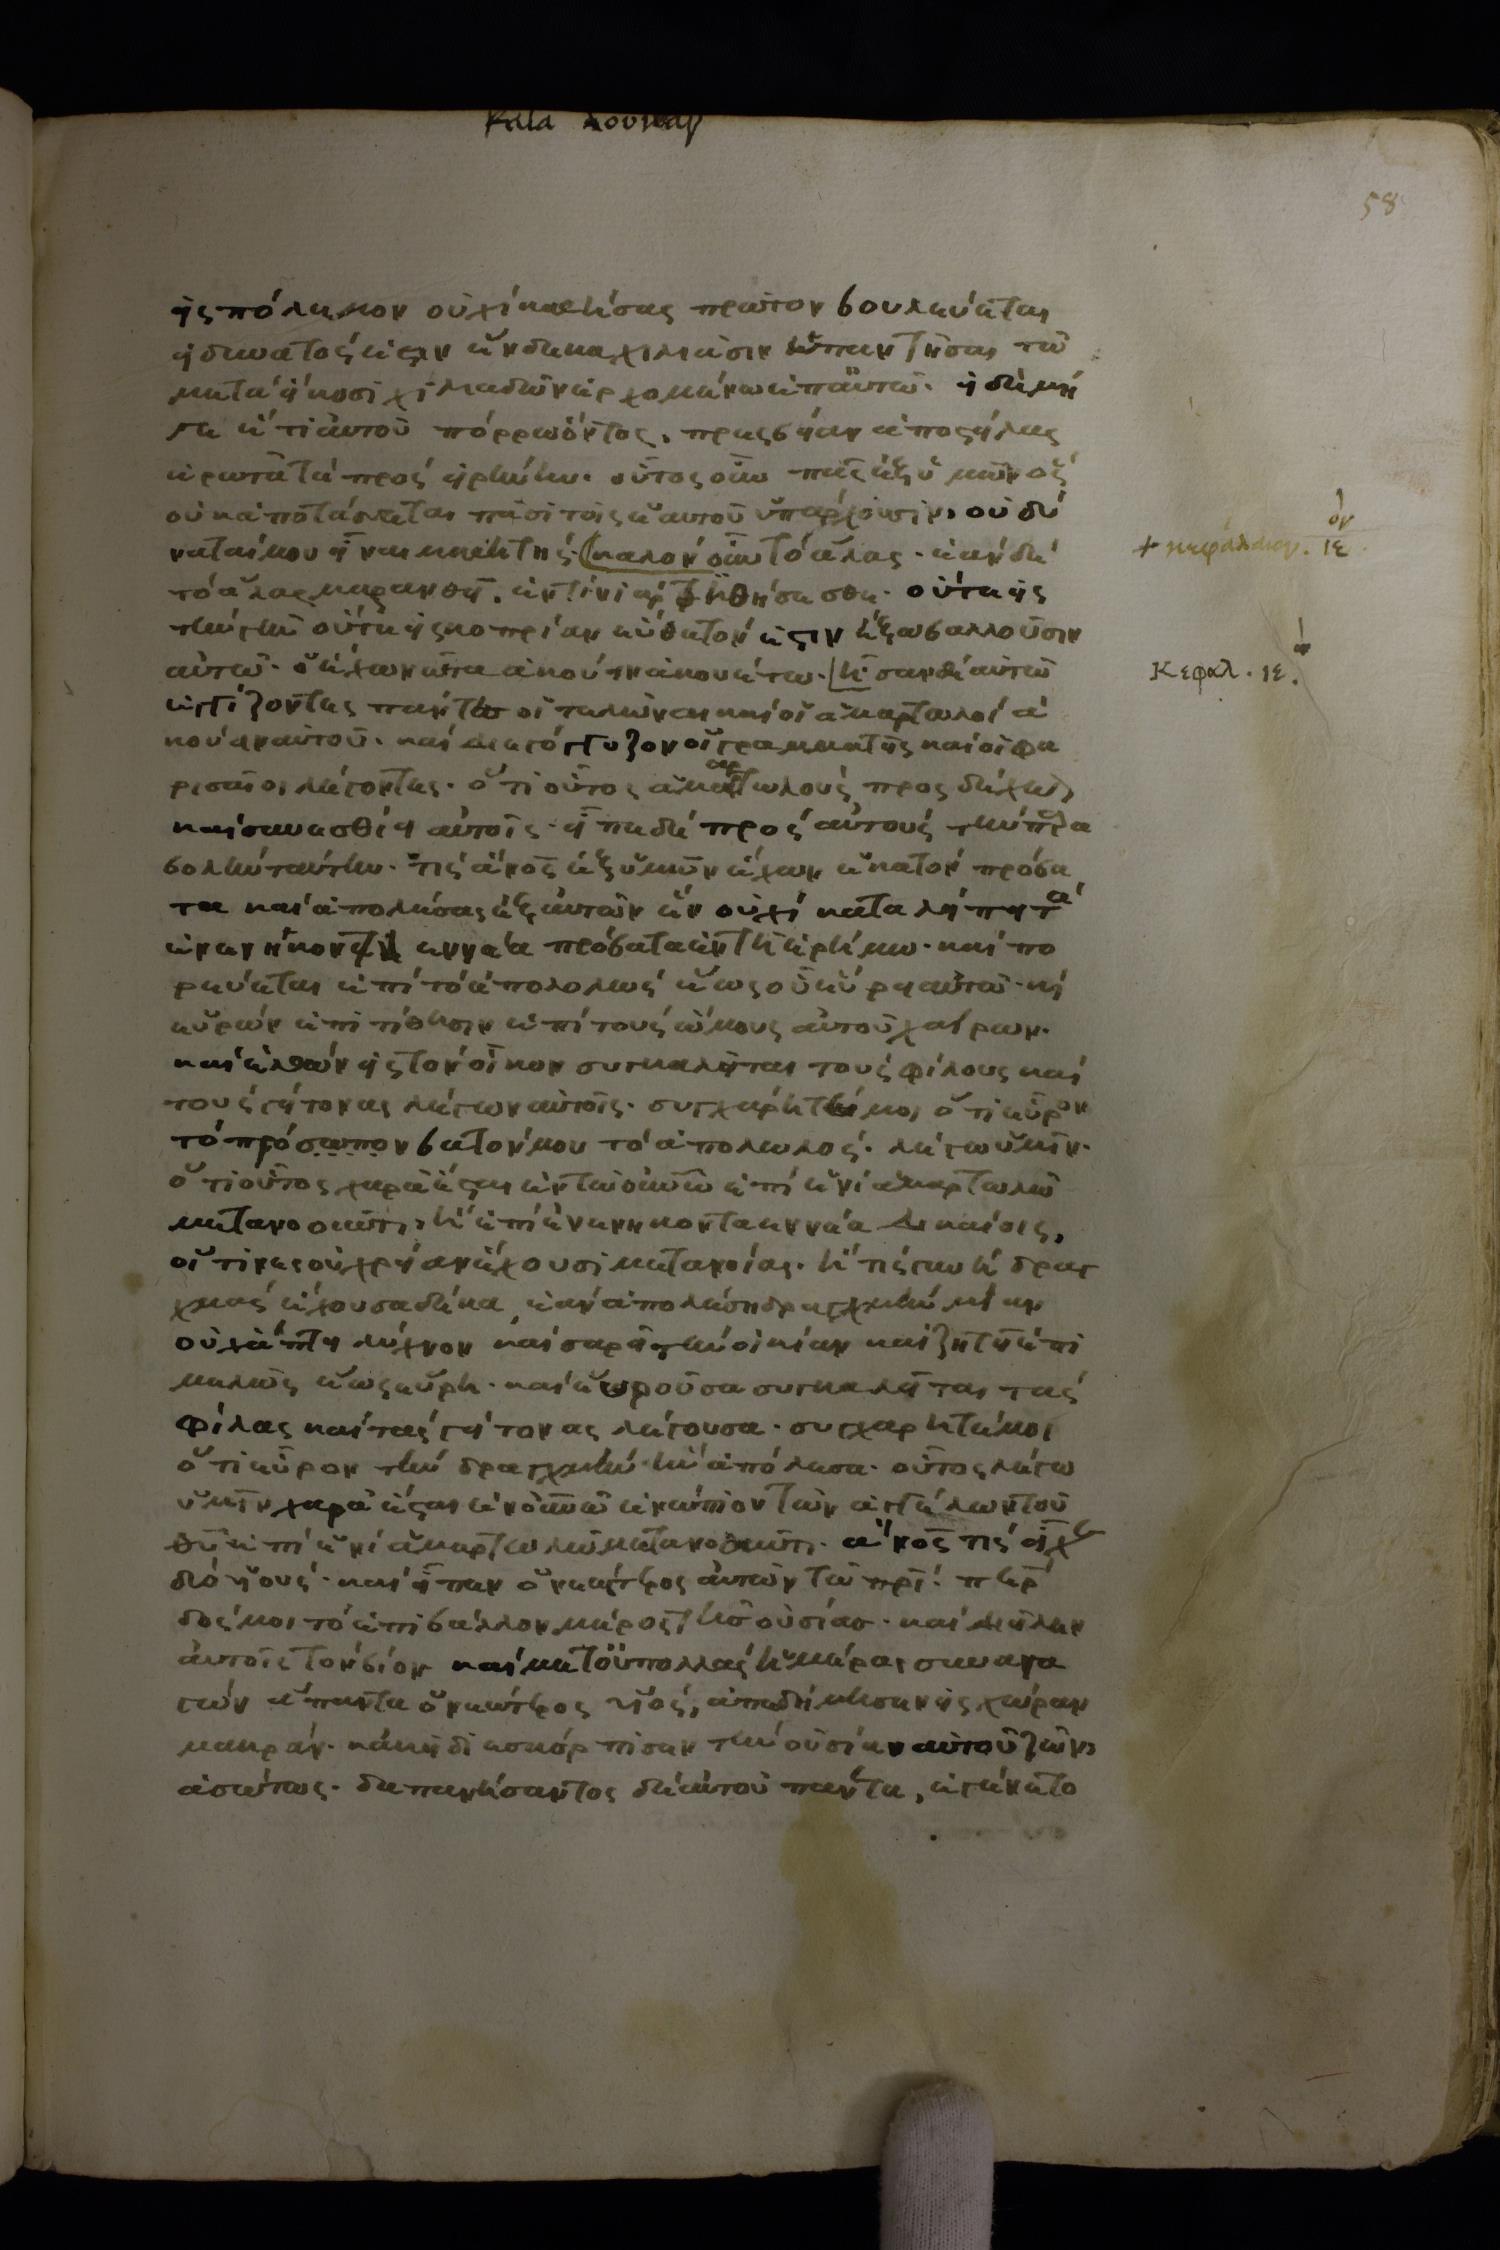 Κατα λουκαν
58
εἰς πόλεμον οὐχί καθήσας πρῶτον βουλεύεται
εἰ δυνατός ἐστιν ἐν δεκα χιλιάσιν ὑπαντῆσαι τῶ
μετά εἴκοσι χιλιαδῶν ἐρχομένω ἐπ αὐτῶ. εἰ δέ μή
γε ἔτι αὐτοῦ πόρρω ὄντος, πρεσβείαν ἀποστείλας
ἐρωτᾶ τά πρός εἰρήνην. οὕτος οὖν πᾶς ἐξ ὑμῶν ὅς
οὐκ ἀποτάσσεται πᾶσι τοῖς ἑαυτοῦ ὑπάρχουσιν, οὐ δύ
ναται μου εἶναι μαθητής. καλόν οὖν τό ἅλας. ἐάν δέ
τό ἅλας μαρανθῆ, ἐν τίνι ἀρτηθήσεσθε. οὔτε εἰς
τήν γῆν οὔτε εἰς κοπρίαν εὔθετόν ἐστιν ἔξω βαλλοῦσιν
αὐτῶ. ὁ ἔχων ὦτα ἀκούειν ἀκουέτω. ἦσαν δέ αὐτῶ
ἐγγίζοντες πάντες οἱ τελῶναι καί οἱ ἁμαρτωλοί ἀ
κούειν αὐτοῦ. καί διεγόγγυζον οἱ γραμματεῖς καί οἱ φα
ρισαῖοι λέγοντες. ὅτι οὗτος ἁμαρτωλούς προσδέχεται
καί συνεσθίει αὐτοῖς. εἶπε δέ πρός αὐτούς τήν πα̅ρα
βολήν ταύτην. τίς ἄνος ἐξ ὑμῶν ἔχων ἑκατόν πρόβα
τα καί ἀπολέσας ἐξ αὐτῶν ἕν οὐχί καταλείπει τά
ἐνενήκοντα ἐννέα πρόβατα ἐν τῆ ἐρήμω. καί πο
ρεύεται ἐπί τό ἀπολολως ἕως οὗ εὕρη αὐτω. καί
εὑρών ἐπιτίθησιν ἐπί τούς ὤμους αὐτοῦ χαίρων.
καί ἐλθών εἰς τόν οἶκον συγκαλεῖται τούς φίλους καί
τούς γείτονας λέγων αὐτοῖς. συγχάρητέ μοι ὅτι εὗρον
τό πρόσωπον βατόν μου τό ἀπολωλός. λέγω ὑμῖν.
ὅτι οὗτος χαρά ἔσται ἐν τῶ οὐνῶ ἐπί ἑνί ἁμαρτωλῶ
μετανοοῦντι, ἤ ἐπί ἐνενηκοντα εννέα δικαίοις,
οἵτινες οὐ χρείαν ἔχουσι μετανοίας. ἤ τίς γυνή δραγ
χμάς ἔχουσα δέκα, ἐάν ἀπολέση δραγχμήν μίαν
οὐχ ἅπτει λύχνον καί σαρεῖ τήν οἰκίαν καί ζητεῖ ἐπι
μελῶς ἕως εὕρη. καί εὑροῦσα συγκαλεῖται τάς
φίλας καί τάς γείτονας λέγουσα. συγχάρητέ μοι
ὅτι εὗρον τήν δραγχμήν ἥν ἀπόλεσα. οὗτος λέγω
ὑμῖν χαρά ἔσται ἐν οὐνῶ ἐνώπιον τῶν ἀγγέλων τοῦ
θῦ ἐπί ἑνί ἁμαρτωλῶ μετανοοῦντι. ἄνος τίς εἶχε
δύο υἱούς. καί εἶπεν ὁ νεώτερος αὐτῶν τῶ πρί. πτερ
δός μοι τό ἐπιβάλλον μέρος τῆς οὐσίας. καί διεῖλεν
αὐτοῖς τόν βίον καί μετ οὐ πολλάς ἡμέρας συναγα
γών ἅπαντα ὁ νεώτερος υἱός, ἀπεδήμησεν εἰς χώραν
μακράν. κἀκεῖ διεσκόρπισεν τήν οὐσίαν αὐτοῦ ζῶν
ἀσώτως. δαπανήσαντος δέ αὐτοῦ πάντα, ἐγένετο
+ κεφάλαιον. ιε ον
Κεφαλ. ιε.